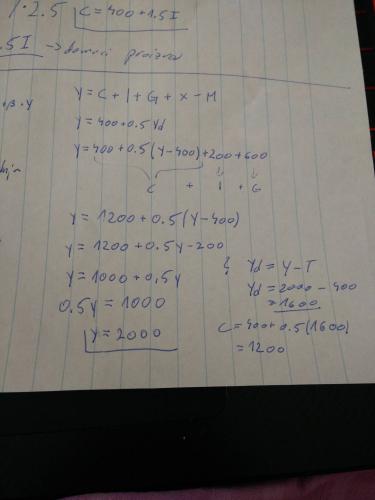 1.2.5 C = 400 + 1.5 I
.5I → domaći proizvod
+β·Y
Y = C + I + G + X - M
Y = 400 + 0.5 Yd
Y = 400 + 0.5 (Y - 400) + 200 + 600
C + I + G
Y = 1200 + 0.5 (Y - 400)
Y = 1200 + 0.5Y - 200
Y = 1000 + 0,5Y
0.5Y = 1000
Y = 2000
Yd = Y - T
Yd = 2000 - 400
= 1600
C = 400 + 0.5 (1600)
= 1200